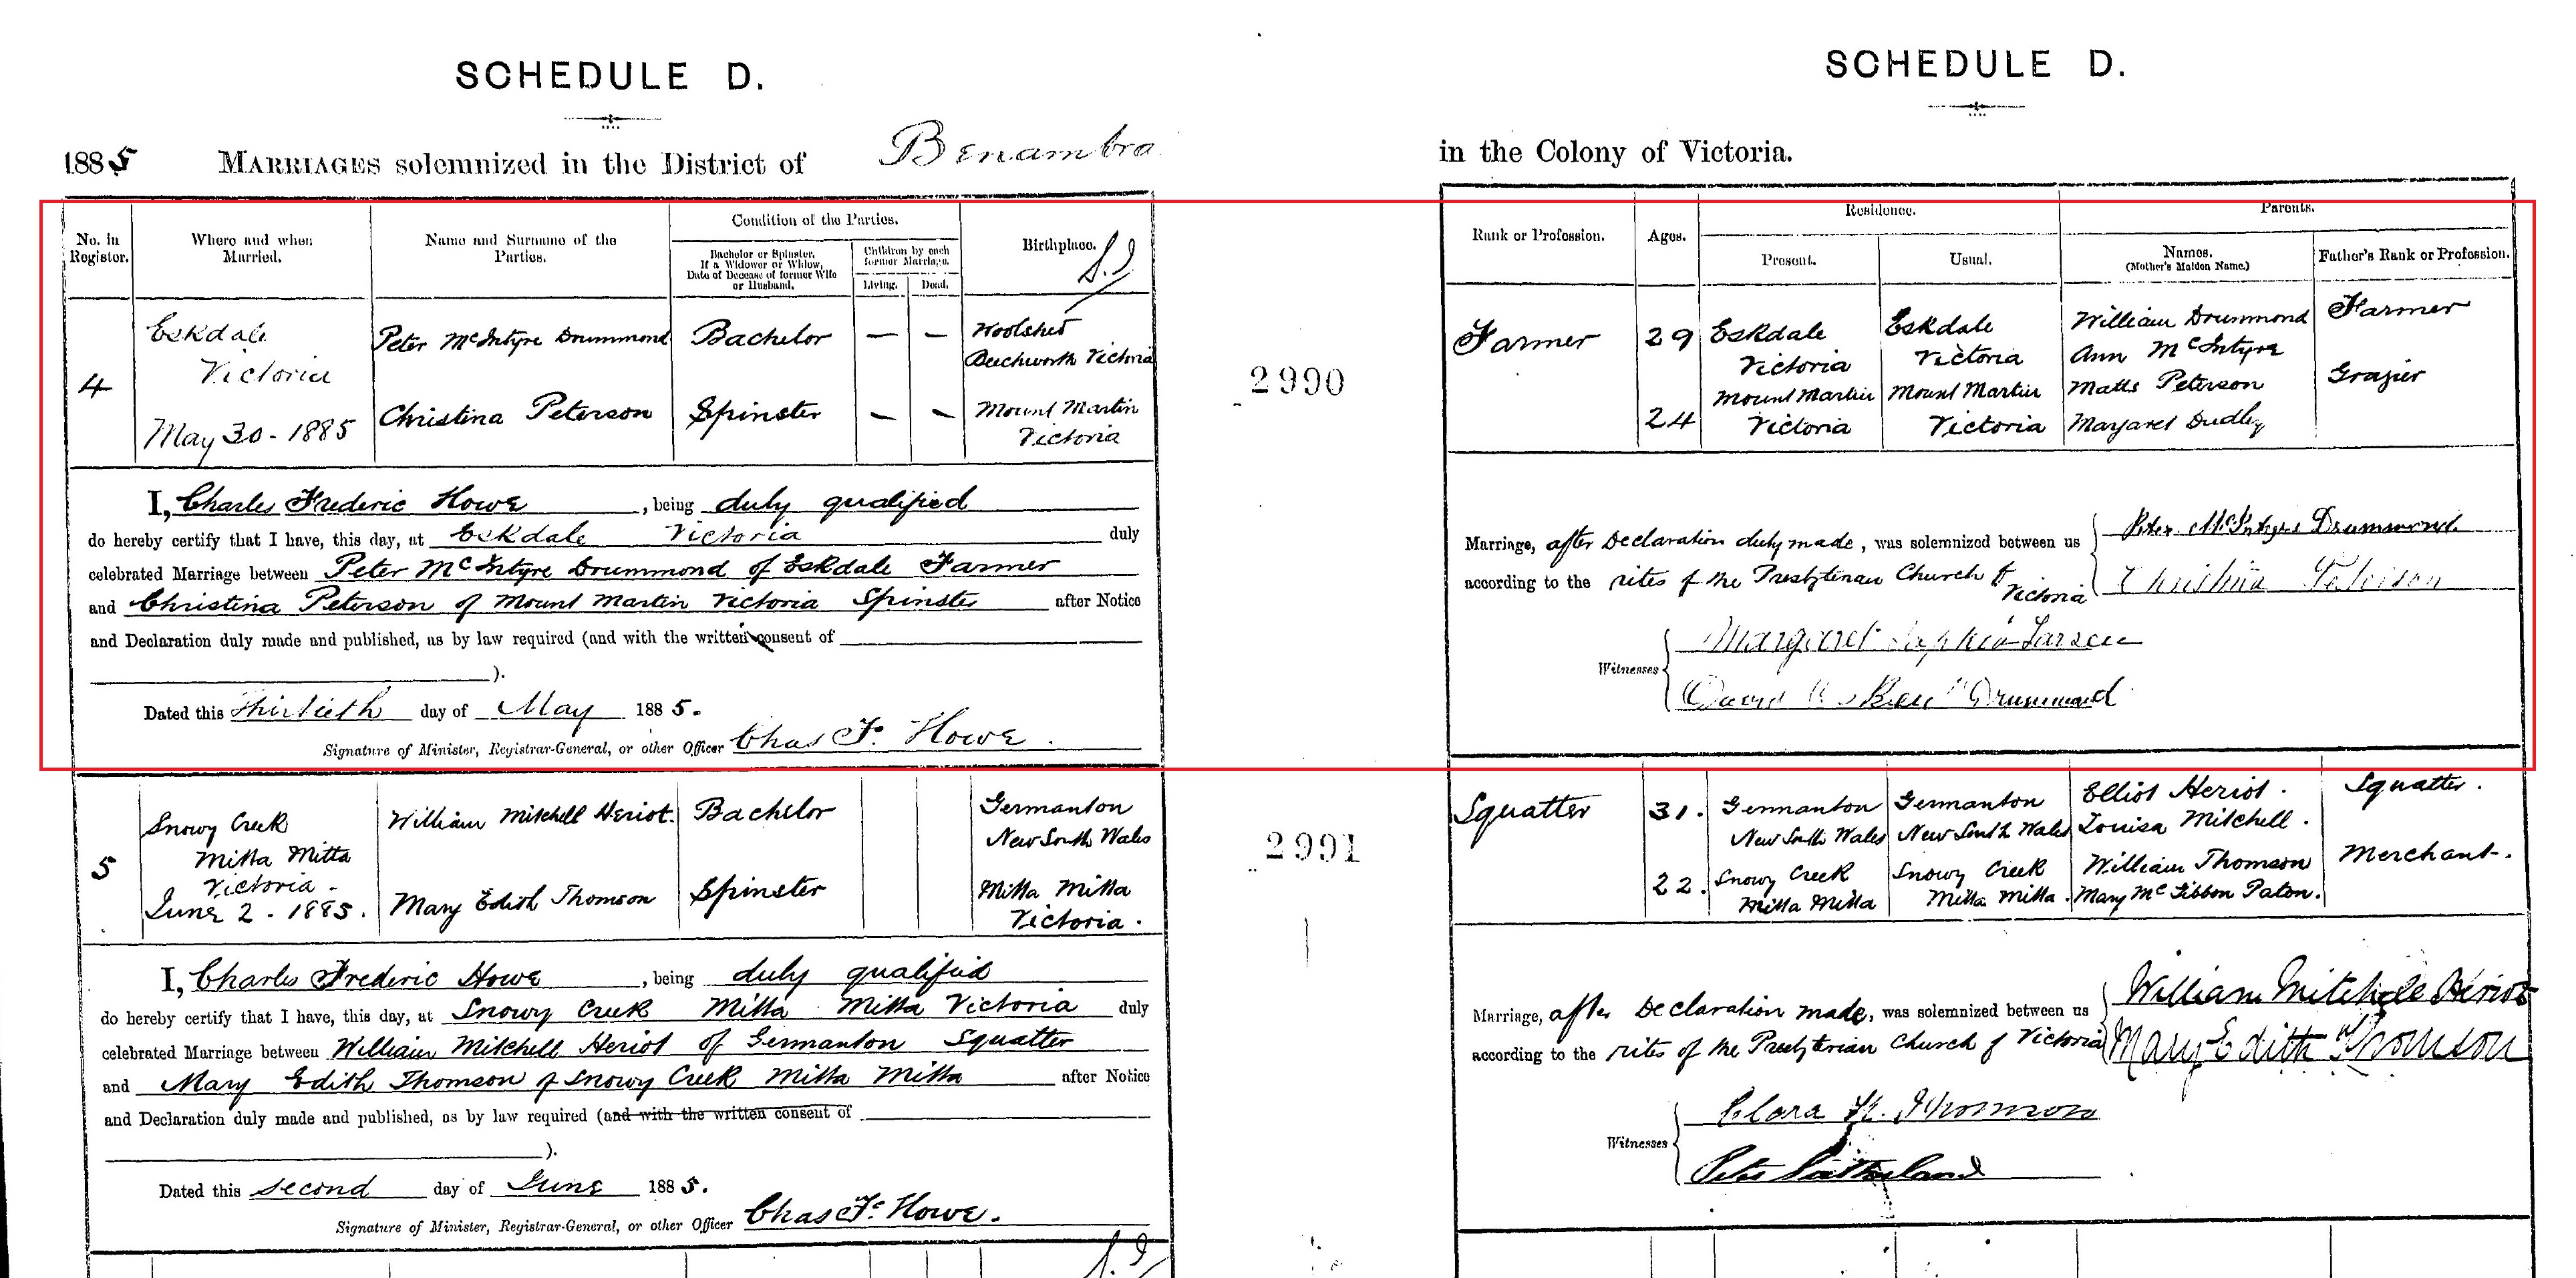 SCHEDULE D.
1885 MARRIAGES solemnized in the District of Benambra
No. in Register.
Where and when Married.
Name and Surname of the Parties.
Condition of the Parties.
Bachelor or Spinster. If a Widower or Widow, Date of Decease of former Wife or Husband.
Children by each former Marriage.
Living.
Dead.
Birthplace.
4
Eskdale
Victoria
May 30 - 1885
Peter McIntyre Drummond
Bachelor
—
—
Woolshed
Beechworth Victoria
Christina Peterson
Spinster
—
—
Mount Martin
Victoria
I, Charles Frederic Howe, being duly qualified
do hereby certify that I have, this day, at Eskdale Victoria duly
celebrated Marriage between Peter McIntyre Drummond of Eskdale Farmer
and Christina Peterson of Mount Martin Victoria Spinster after Notice
and Declaration duly made and published, as by law required (and with the written consent of
).
Dated this Thirtieth day of May 1885.
Signature of Minister, Registrar-General, or other Officer Chas F. Howe.
5
Snowy Creek
Mitta Mitta
Victoria -
June 2 - 1885.
William Mitchell Heriot.
Bachelor
Germanton
New South Wales
Mary Edith Thomson
Spinster
Mitta Mitta
Victoria.
I, Charles Frederic Howe, being duly qualified
do hereby certify that I have, this day, at Snowy Creek Mitta Mitta Victoria duly
celebrated Marriage between William Mitchell Heriot of Germanton Squatter
and Mary Edith Thomson of Snowy Creek Mitta Mitta after Notice
and Declaration duly made and published, as by law required (and with the written consent of
).
Dated this second day of June 1885.
Signature of Minister, Registrar-General, or other Officer Chas F. Howe.
2990
2991
SCHEDULE D.
in the Colony of Victoria.
Rank or Profession.
Ages.
Residence.
Present.
Usual.
Parents.
Names. (Mother's Maiden Name.)
Father's Rank or Profession.
Farmer
29
Eskdale
Victoria
Eskdale
Victoria
William Drummond
Ann McIntyre
Farmer
24
Mount Martin
Victoria
Mount Martin
Victoria
Matts Peterson
Margaret Dudley
Grazier
Marriage, after Declaration duly made, was solemnized between us
according to the rites of the Presbyterian Church of Victoria
Peter McIntyre Drummond
Christina Peterson
Witnesses
Margaret Sophia Larsen
David Drummond
Squatter
31.
Germanton
New South Wales
Germanton
New South Wales
Elliot Heriot.
Louisa Mitchell.
Squatter.
22.
Snowy Creek
Mitta Mitta
Snowy Creek
Mitta Mitta.
William Thomson
Mary McGibbon Paton.
Merchant.
Marriage, after Declaration made, was solemnized between us
according to the rites of the Presbyterian Church of Victoria
William Mitchell Heriot
Mary Edith Thomson
Witnesses
Clara H. Thomson
Peter Sutherland